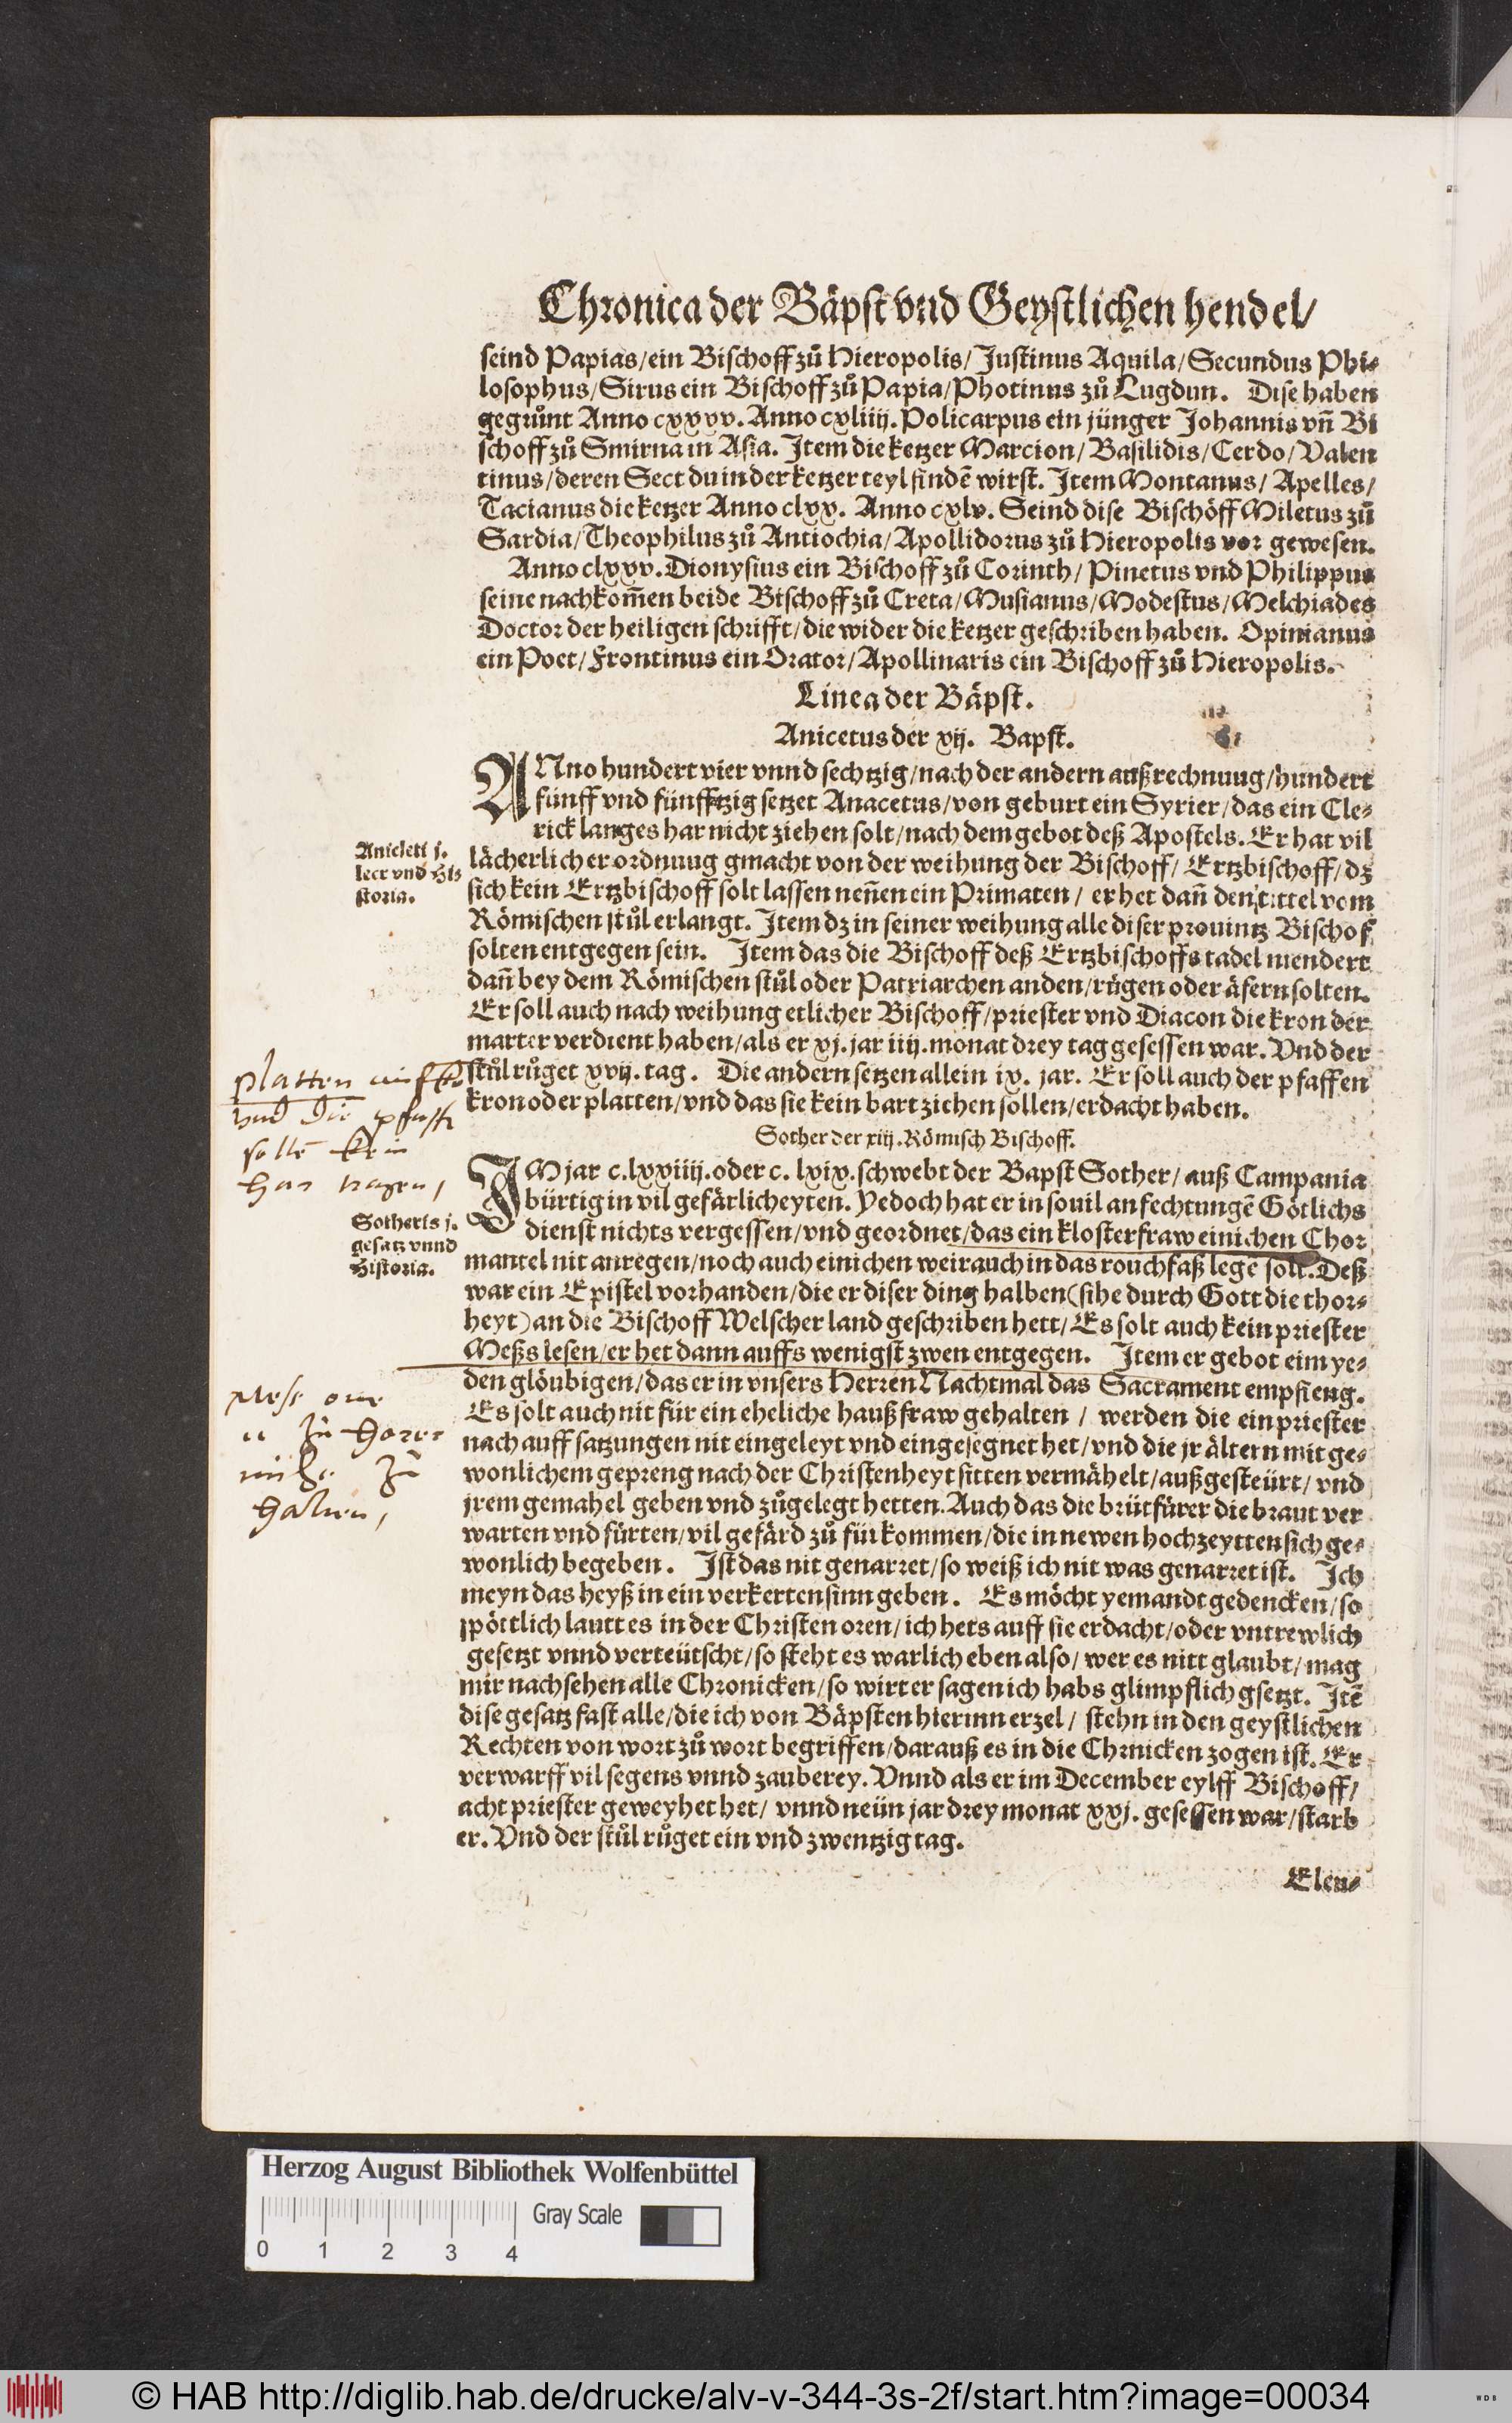 Chronica der Bäpst vnd Geystlichen hendel/
seind Papias/ein Bischoff zů Hieropolis/Justinus Aquila/Secundus Phi⸗
losophus/Sirus ein Bischoff zů Papia/Photinus zů Lugdun. Dise haben
gegrůnt Anno cxxxv. Anno cxliiij. Policarpus ein jünger Johannis vn̄ Bi
schoff zů Smirna in Asia. Item die ketzer Marcion/Basilidis/Cerdo/Valen
tinus/deren Sect du in der ketzer teyl findē wirst. Item Montanus/Apelles/
Tacianus die ketzer Anno clxx. Anno cxlv. Seind dise Bischöff Miletus zů
Sardia/Theophilus zů Antiochia/Apollidorus zů Hieropolis vor gewesen.
Anno clxxv. Dionysius ein Bischoff zů Corinth/Pinetus vnd Philippus
seine nachkom̄en beide Bischoff zů Creta/Musianus/Modestus/Melchiades
Doctor der heiligen schrifft/die wider die ketzer geschriben haben. Opinianus
ein Poet/Frontinus ein Orator/Apollinaris ein Bischoff zů Hieropolis.
Linea der Bäpst.
Anicetus der xij. Bapst.
ANno hundert vier vnnd sechtzig/nach der andern außrechnuug/hundert
fünff vnd fünfftzig setzet Anacetus/von geburt ein Syrier/das ein Cle⸗
rick langes har nicht ziehen solt/nach dem gebot deß Apostels. Er hat vil
Anicleti j.
leer vnd Hi⸗
storia.
lächerlicher ordnuug gmacht von der weihung der Bischoff/Ertzbischoff/dz
sich kein Ertzbischoff solt lassen nen̄en ein Primaten/er het dan̄ den tittel vom
Römischen stůl erlangt. Item dz in seiner weihung alle diser prouintz Bischof
solten entgegen sein. Item das die Bischoff deß Ertzbischoffs tadel niendert
dan̄ bey dem Römischen stůl oder Patriarchen anden/rügen oder äfern solten.
Er soll auch nach weihung etlicher Bischoff/priester vnd Diacon die kron der
marter verdient haben/als er xj. jar iiij. monat drey tag gesessen war. Vnd der
stůl růget xvij. tag. Die andern setzen allein ix. jar. Er soll auch der pfaffen
kron oder platten/vnd das sie kein bart ziehen sollen/erdacht haben.
platten
vnd die pfaffe
solte kein
har tragen,
Sother der xiij. Römisch Bischoff.
IM jar c.lxxiiij. oder c. lxix. schwebt der Bapst Sother/auß Campania
bürtig in vil gefärlicheyten. Yedoch hat er in souil anfechtungē Götlichs
dienst nichts vergessen/vnd geordnet/das ein klosterfraw einichen Chor
Sotheris j.
gesatz vnnd
Historia.
mantel nit anregen/noch auch einichen weirauch in das rouchfaß legē soll. Deß
war ein Epistel vorhanden/die er diser ding halben (sihe durch Gott die thor⸗
heyt) an die Bischoff Welscher land geschriben hett/Es solt auch kein priester
Meßs lesen/er het dann auffs wenigst zwen entgegen. Item er gebot eim ye⸗
den glöubigen/das er in vnsers Herren Nachtmal das Sacrament empfieng.
Es solt auch nit für ein eheliche haußfraw gehalten/werden die ein priester
nach auffsatzungen nit eingeleyt vnd eingesegnet het/vnd die jr ältern mit ge⸗
wonlichem gepreng nach der Christenheyt sitten vermähelt/außgesteürt/vnd
jrem gemahel geben vnd zůgelegt hetten. Auch das die brütfürer die braut ver
warten vnd fürten/vil gefärd zů fürkommen/die in newen hochzeytten sich ge⸗
wonlich begeben. Ist das nit genarret/so weiß ich nit was genarret ist. Ich
meyn das heyß in ein verkerten sinn geben. Es möcht yemandt gedencken/so
spöttlich lautt es in der Christen oren/ich hets auff sie erdacht/oder vntrewlich
gesetzt vnnd verteütscht/so steht es warlich eben also/wer es nitt glaubt/mag
mir nachsehen alle Chronicken/so wirt er sagen ich habs glimpflich gsetzt. Itē
dise gesatz fast alle/die ich von Bäpsten hierinn erzel/stehn in den geystlichen
Rechten von wort zů wort begriffen/darauß es in die Chrnicken zogen ist. Er
verwarff vil segens vnnd zauberey. Vnnd als er im December eylff Bischoff/
acht priester geweyhet het/vnnd neün jar drey monat xxj. gesessen war/starb
er. Vnd der stůl růget ein vnd zwentzig tag.
Mess one
zu horer
zu
halten,
Elen⸗
Herzog August Bibliothek Wolfenbüttel
Gray Scale
0 1 2 3 4
© HAB http://diglib.hab.de/drucke/alv-v-344-3s-2f/start.htm?image=00034